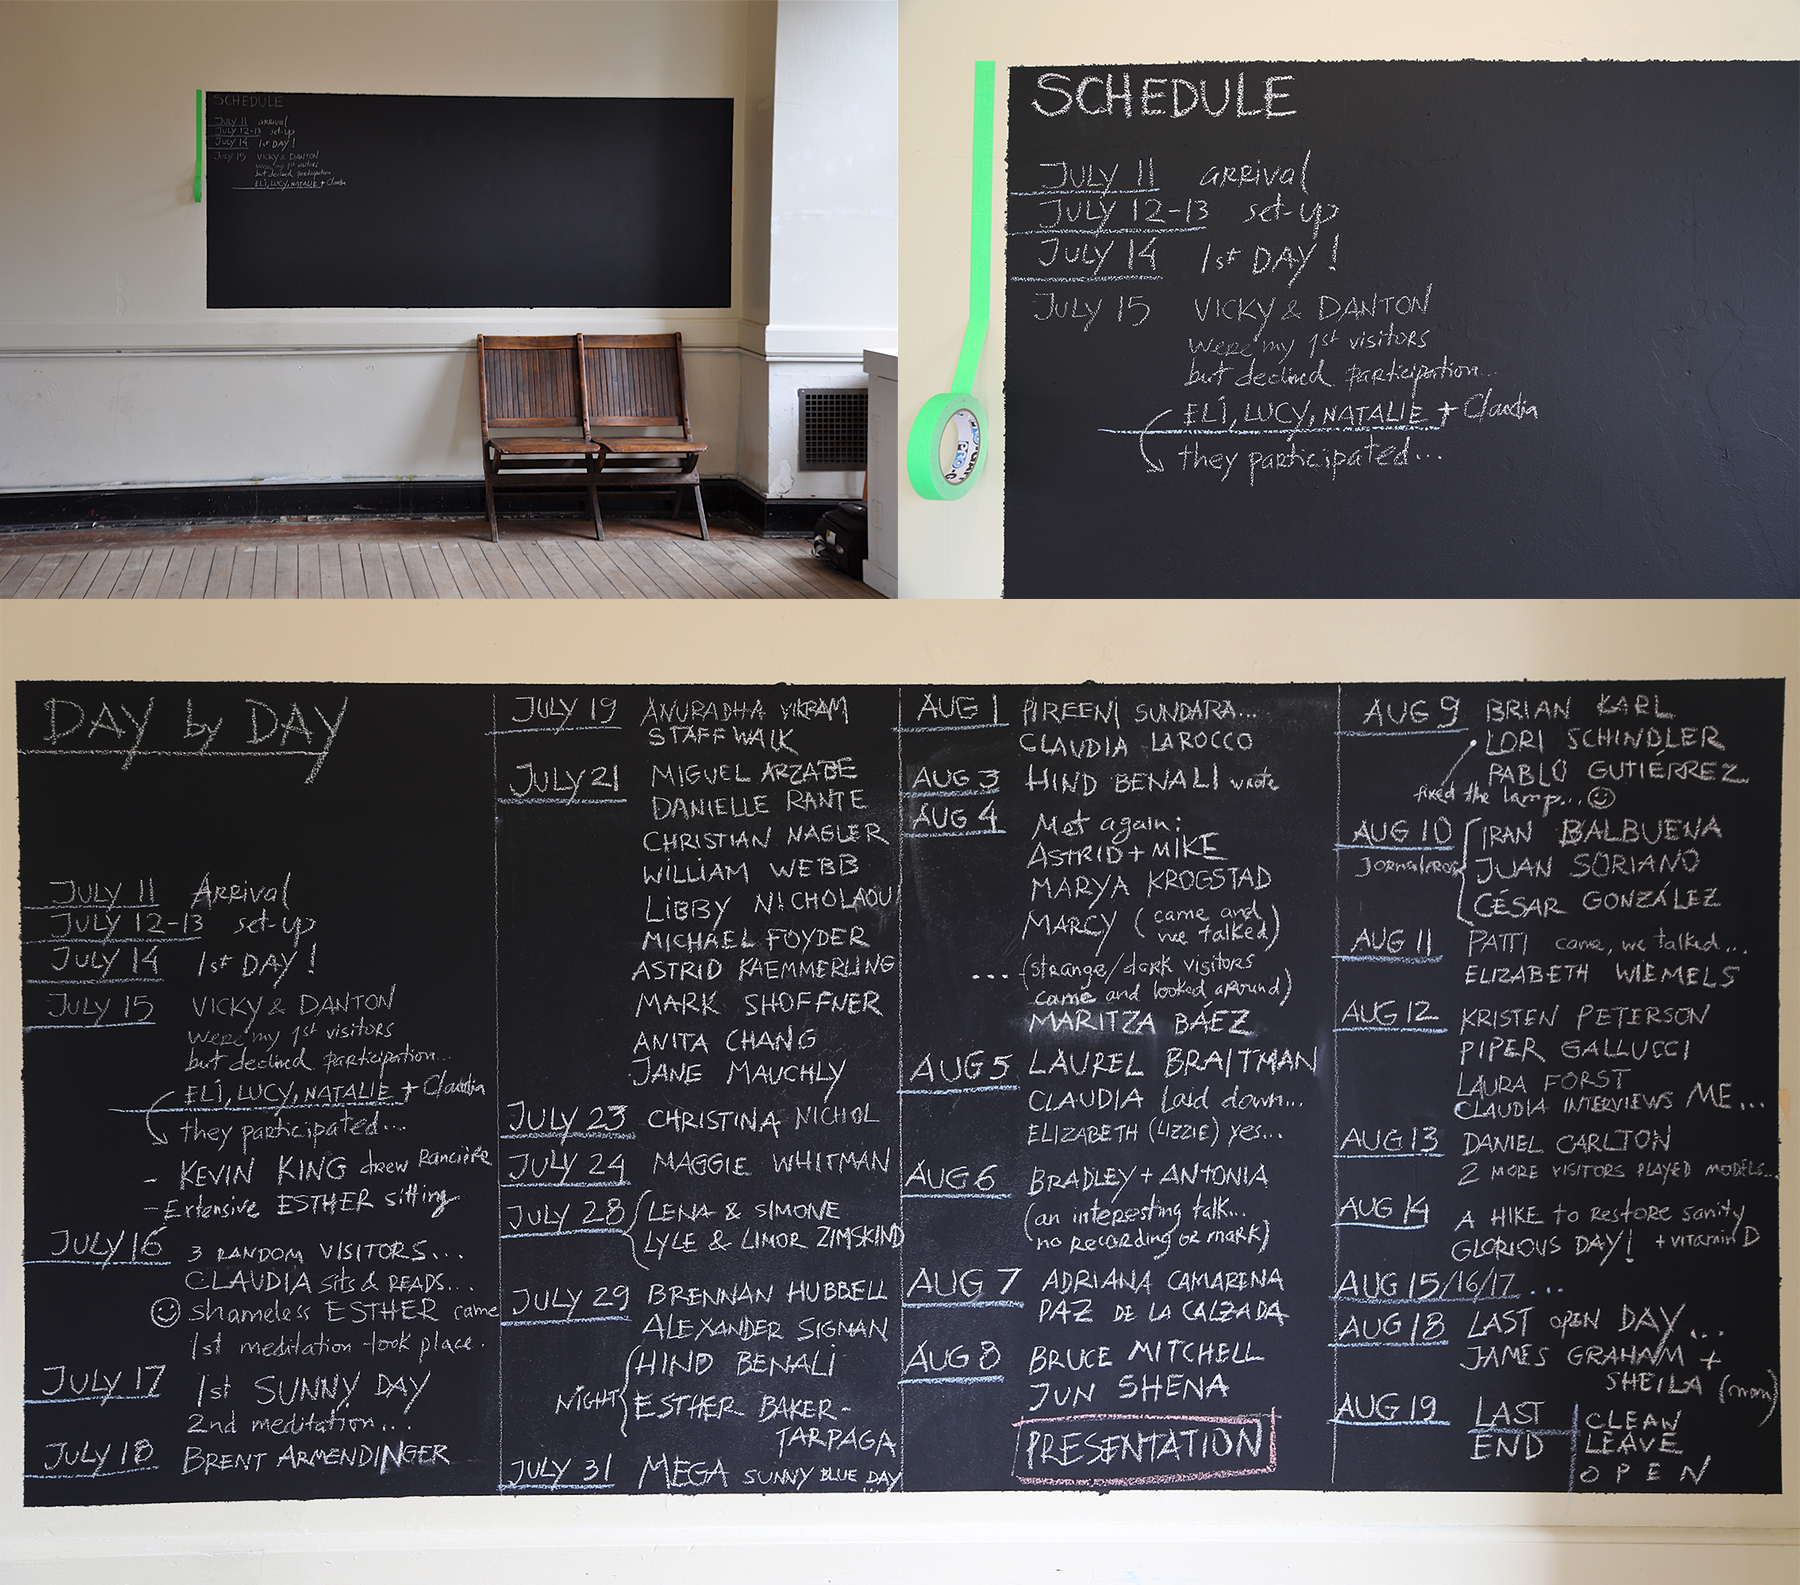 SCHEDULE
JULY 11 arrival
JULY 12-13 set-up
JULY 14 1st DAY!
JULY 15 VICKY & DANTON
were my 1st visitors
but declined participation
ELI, LUCY, NATALIE + Claudia
SCHEDULE
JULY 11 arrival
JULY 12-13 set-up
JULY 14 1st DAY!
JULY 15 VICKY & DANTON
were my 1st visitors
but declined participation...
ELI, LUCY, NATALIE + Claudia
they participated...
DAY by DAY
JULY 11 Arrival
JULY 12-13 set-up
JULY 14 1st DAY!
JULY 15 VICKY & DANTON
were my 1st visitors
but declined participation...
ELI, LUCY, NATALIE + Claudia
they participated...
- KEVIN KING drew Rancière
- Extensive ESTHER sitting
JULY 16 3 RANDOM VISITORS...
CLAUDIA sits & READS...
☺ shameless ESTHER came
1st meditation took place.
JULY 17 1st SUNNY DAY
2nd meditation...
JULY 18 BRENT ARMENDINGER
JULY 19 ANURADHA VIKRAM
STAFF WALK
JULY 21 MIGUEL ARZABE
DANIELLE RANTE
CHRISTIAN NAGLER
WILLIAM WEBB
LIBBY NICHOLAOU
MICHAEL FOYDER
ASTRID KAEMMERLING
MARK SHOFFNER
ANITA CHANG
JANE MAUCHLY
JULY 23 CHRISTINA NICHOL
JULY 24 MAGGIE WHITMAN
JULY 28 LENA & SIMONE
LYLE & LIMOR ZIMSKIND
JULY 29 BRENNAN HUBBELL
ALEXANDER SIGMAN
HIND BENALI
NIGHT ESTHER BAKER-
TARPAGA
JULY 31 MEGA SUNNY BLUE DAY...
AUG 1 PIREENI SUNDARA...
CLAUDIA LA ROCCO
AUG 3 HIND BENALI wrote
AUG 4 Met again:
ASTRID + MIKE
MARYA KROGSTAD
MARCY (came and
we talked)
... (strange/dark visitors
came and looked around)
MARITZA BÁEZ
AUG 5 LAUREL BRAITMAN
CLAUDIA laid down...
ELIZABETH (LIZZIE) yes...
AUG 6 BRADLEY + ANTONIA
(an interesting talk...
no recording or mark)
AUG 7 ADRIANA CAMARENA
PAZ DE LA CALZADA
AUG 8 BRUCE MITCHELL
JUN SHENA
PRESENTATION
AUG 9 BRIAN KARL
LORI SCHINDLER
PABLO GUTIÉRREZ
fixed the lamp... ☺
AUG 10 IRAN BALBUENA
Jornaleros JUAN SORIANO
CÉSAR GONZÁLEZ
AUG 11 PATTI came, we talked...
ELIZABETH WIEMELS
AUG 12 KRISTEN PETERSON
PIPER GALLUCCI
LAURA FORST
CLAUDIA INTERVIEWS ME...
AUG 13 DANIEL CARLTON
2 MORE VISITORS PLAYED MODELS...
AUG 14 A HIKE to RESTORE sanity
GLORIOUS DAY! + vitamin D
AUG 15/16/17 ...
AUG 18 LAST OPEN DAY...
JAMES GRAHAM +
SHEILA (mom)
AUG 19 LAST CLEAN
END LEAVE
OPEN